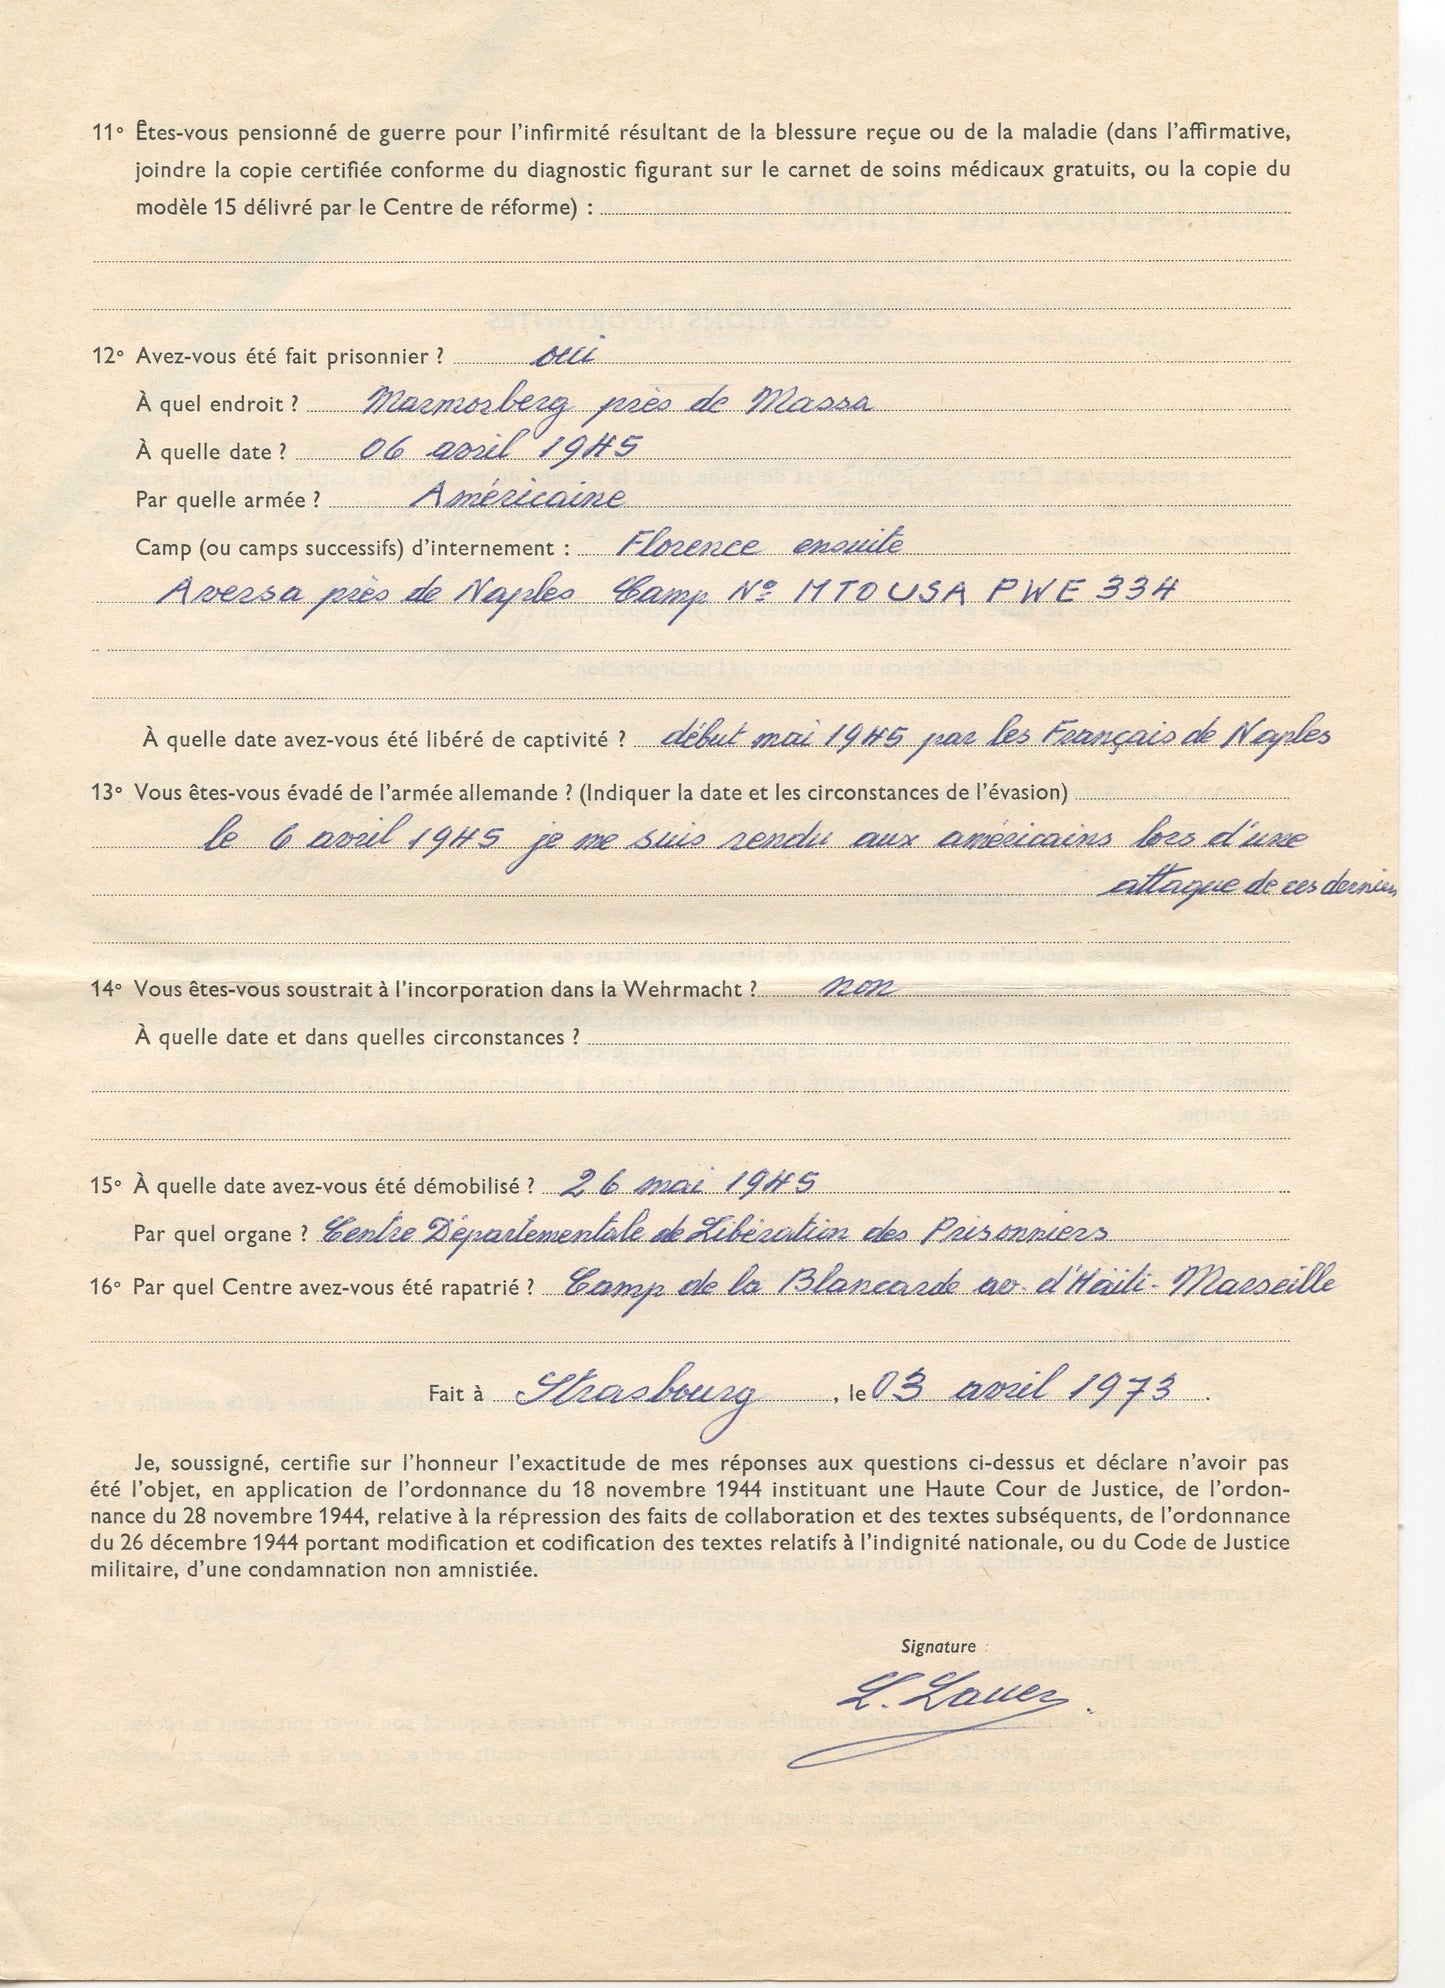 11° Êtes-vous pensionné de guerre pour l'infirmité résultant de la blessure reçue ou de la maladie (dans l'affirmative,
joindre la copie certifiée conforme du diagnostic figurant sur le carnet de soins médicaux gratuits, ou la copie du
modèle 15 délivré par le Centre de réforme) :
12° Avez-vous été fait prisonnier ? oui
À quel endroit ? Marmorberg près de Massa
À quelle date ? 06 avril 1945
Par quelle armée ? Américaine
Camp (ou camps successifs) d'internement : Florence ensuite
Aversa près de Naples Camp N° MTOUSA PWE 334
À quelle date avez-vous été libéré de captivité ? début mai 1945 par les Français de Naples
13° Vous êtes-vous évadé de l'armée allemande ? (Indiquer la date et les circonstances de l'évasion)
le 6 avril 1945 je me suis rendu aux américains lors d'une
attaque de ces derniers
14° Vous êtes-vous soustrait à l'incorporation dans la Wehrmacht ? non
À quelle date et dans quelles circonstances ?
15° À quelle date avez-vous été démobilisé ? 26 mai 1945
Par quel organe ? Centre Départementale de Libération des Prisonniers
16° Par quel Centre avez-vous été rapatrié ? Camp de la Blancarde av. d'Haïti - Marseille
Fait à Strasbourg, le 03 avril 1973.
Je, soussigné, certifie sur l'honneur l'exactitude de mes réponses aux questions ci-dessus et déclare n'avoir pas
été l'objet, en application de l'ordonnance du 18 novembre 1944 instituant une Haute Cour de Justice, de l'ordon-
nance du 28 novembre 1944, relative à la répression des faits de collaboration et des textes subséquents, de l'ordonnance
du 26 décembre 1944 portant modification et codification des textes relatifs à l'indignité nationale, ou du Code de Justice
militaire, d'une condamnation non amnistiée.
Signature :
L. Lauer.